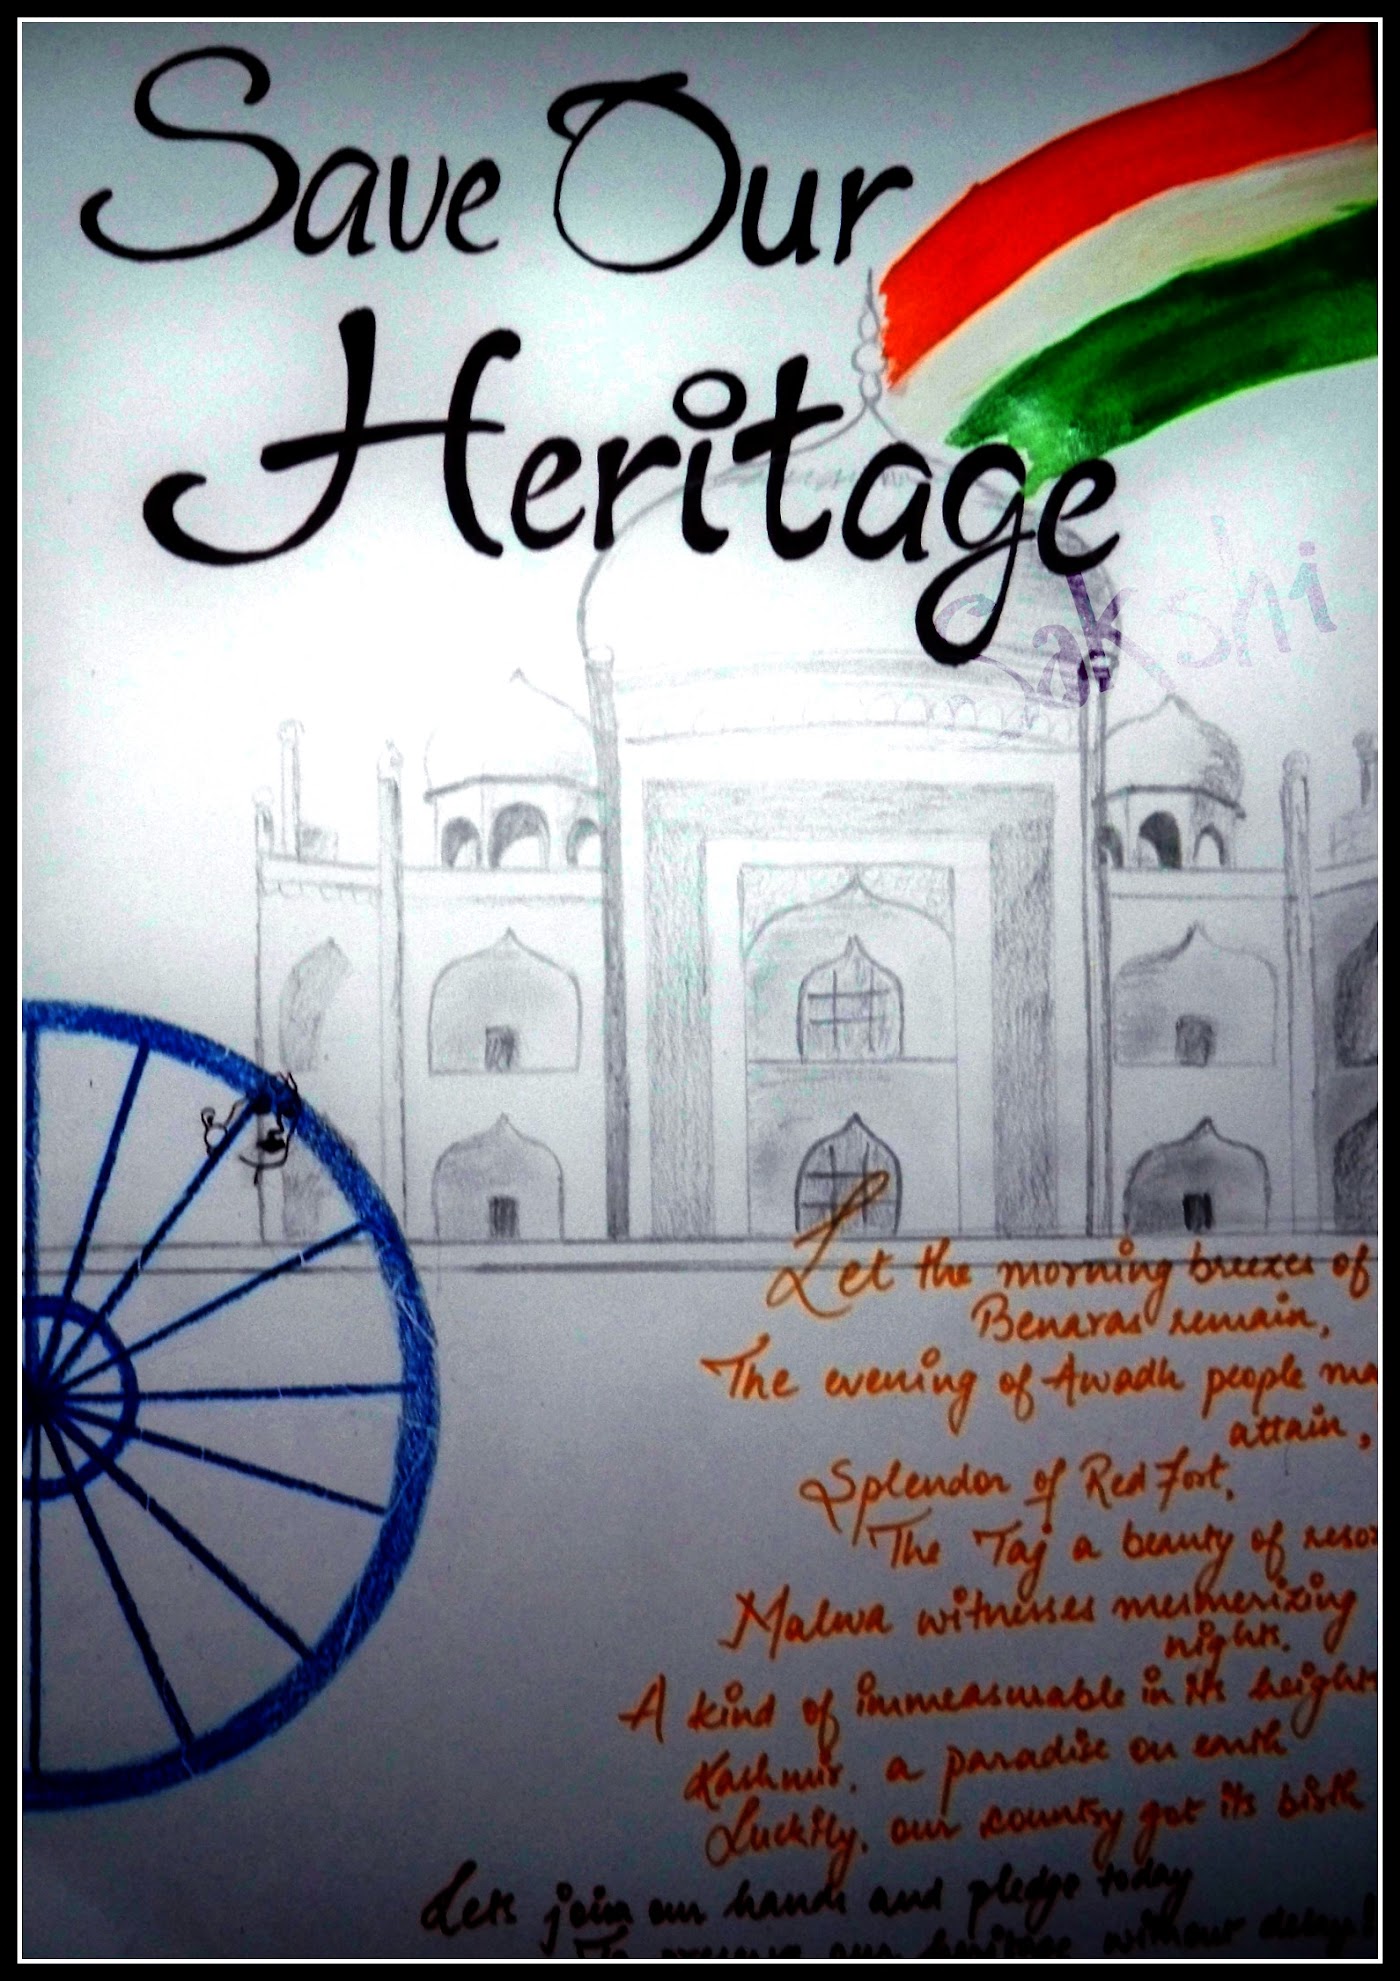 Save Our
Heritage
Sakshi
Let the morning breezes of
Benaras remain,
The evening of Awadh people
attain,
Splendor of Red Fort,
The Taj a beauty of
Malwa witnesses mesmerizing
nights.
A kind of immeasurable in its heights
Kashmir, a paradise on earth
Luckily, our country got its birth
Lets join our hands and pledge today
To preserve our heritage without delay!